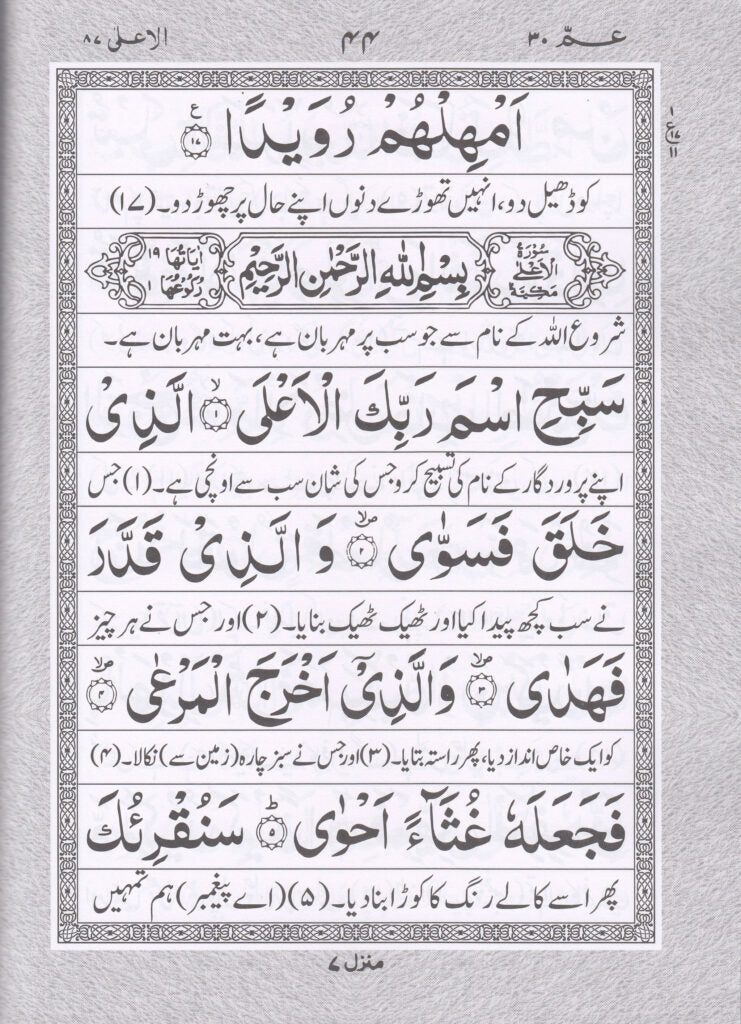 عـمّ ٣٠
۴۴
الاعلىٰ ٨٧
اَمْهِلْهُمْ رُوَيْدًا ﴿١٧﴾ ع
١
١٧ ع
١١
کو ڈھیل دو، انہیں تھوڑے دنوں اپنے حال پر چھوڑ دو۔ (۱۷)
سُوْرَةُ الْاَعْلٰى مَكِّيَّةٌ
بِسْمِ اللهِ الرَّحْمٰنِ الرَّحِيْمِ
اٰيَاتُهَا ١٩ رُكُوْعُهَا ١
شروع اللہ کے نام سے جو سب پر مہربان ہے، بہت مہربان ہے۔
سَبِّحِ اسْمَ رَبِّكَ الْاَعْلَى ﴿١﴾ۙ الَّذِيْ
اپنے پروردگار کے نام کی تسبیح کرو جس کی شان سب سے اونچی ہے۔ (۱) جس
خَلَقَ فَسَوّٰى ﴿٢﴾ۙ وَالَّذِيْ قَدَّرَ
نے سب کچھ پیدا کیا اور ٹھیک ٹھیک بنایا۔ (۲) اور جس نے ہر چیز
فَهَدٰى ﴿٣﴾ۙ وَالَّذِيْۤ اَخْرَجَ الْمَرْعٰى ﴿٤﴾ۙ
کو ایک خاص انداز دیا، پھر راستہ بتایا۔ (۳) اور جس نے سبز چارہ (زمین سے) نکالا۔ (۴)
فَجَعَلَهٗ غُثَآءً اَحْوٰى ﴿٥﴾ؕ سَنُقْرِئُكَ
پھر اسے کالے رنگ کا کوڑا بنا دیا۔ (۵) (اے پیغمبر) ہم تمہیں
منزل ٧